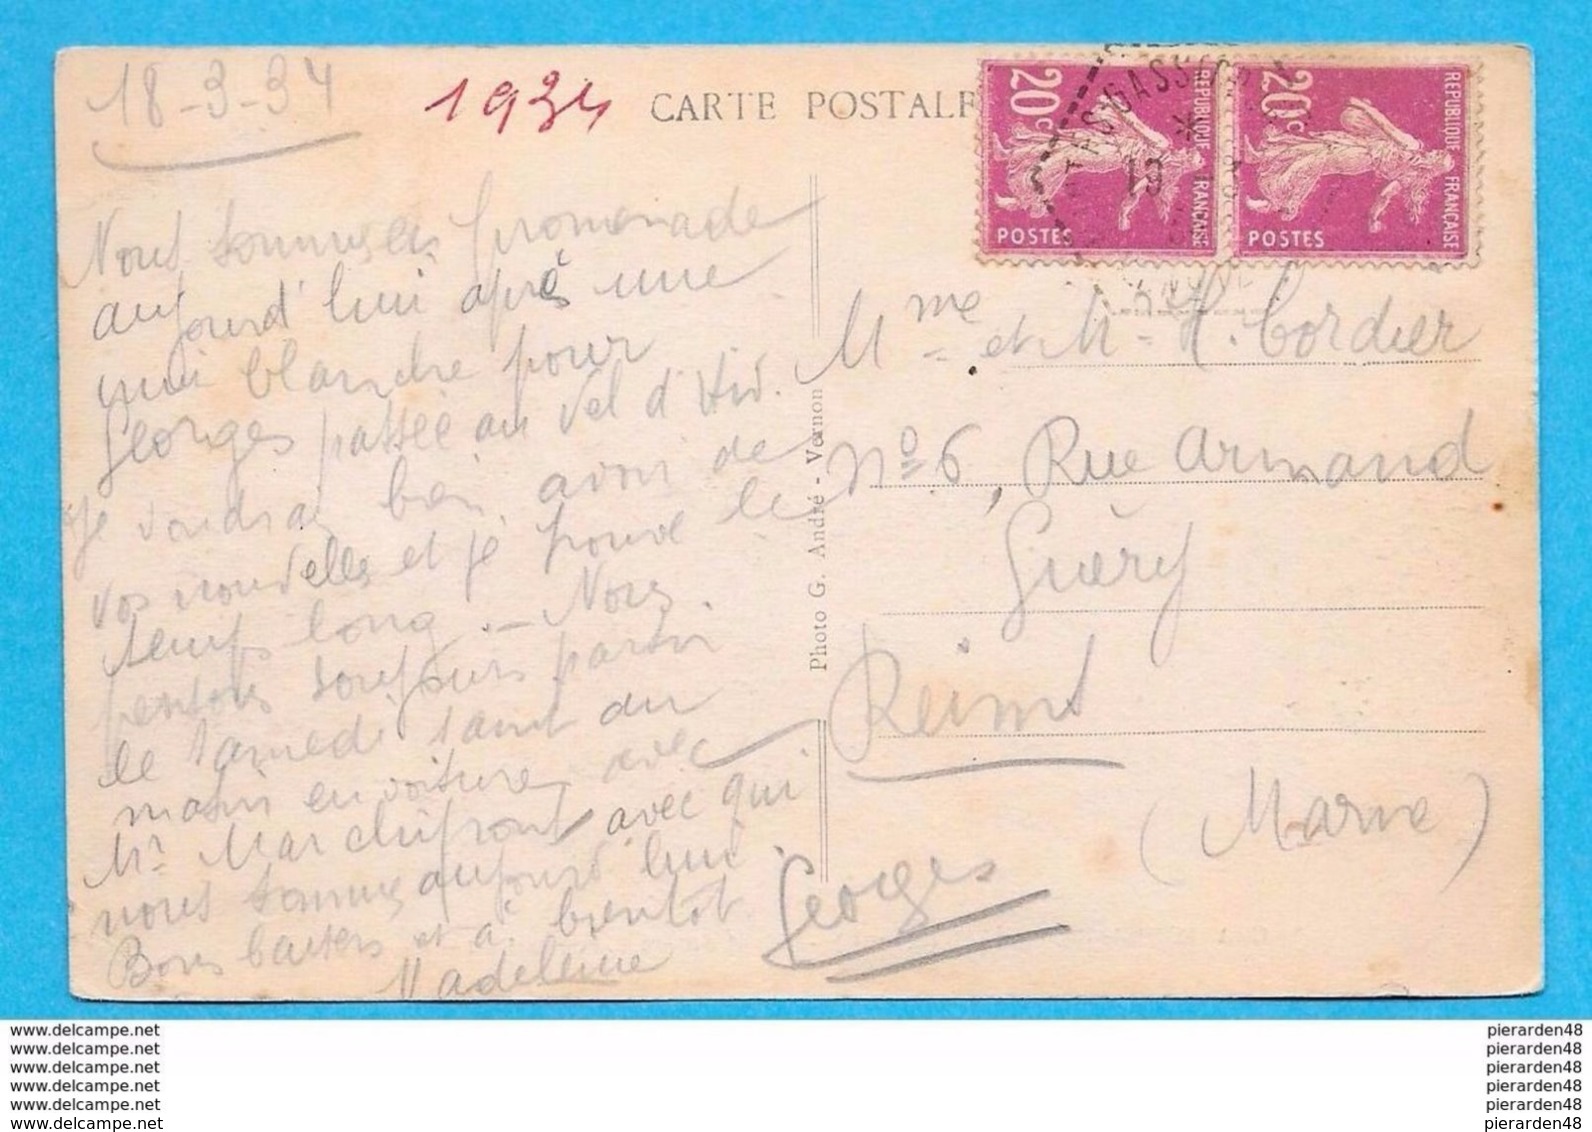 18-3-34
1934
CARTE POSTALE
Nous sommes en promenade
aujourd'hui après une
nuit blanche pour
Georges passée au Vel d'Hiv.
Je voudrais bien avoir de
vos nouvelles et je trouve le
temps long. - Nous
pensons toujours partir
le samedi saint au
matin en voiture avec
Mr Marchifront avec qui
nous sommes aujourd'hui
Bons baisers et à bientôt
Madeleine
Georges
Photo G. André - Vernon
20c
REPUBLIQUE FRANÇAISE
POSTES
20c
REPUBLIQUE FRANÇAISE
POSTES
19
Mme et Mr H. Cordier
No 6, Rue Armand
Guéry
Reims
(Marne)
www.delcampe.net
www.delcampe.net
www.delcampe.net
www.delcampe.net
www.delcampe.net
www.delcampe.net
pierarden48
pierarden48
pierarden48
pierarden48
pierarden48
pierarden48